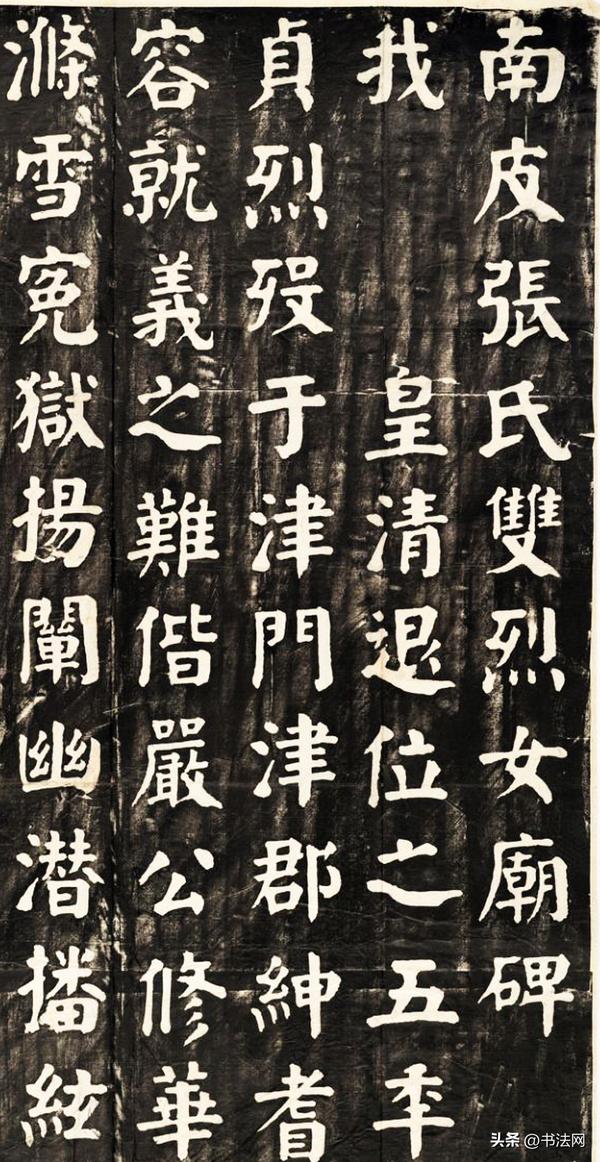 南皮張氏雙烈女廟碑
我皇清退位之五年
貞烈歿于津門津郡紳耆
容就義之難偕嚴公修華
滌雪冤獄揚闡幽潛播絃
头条 @书法网